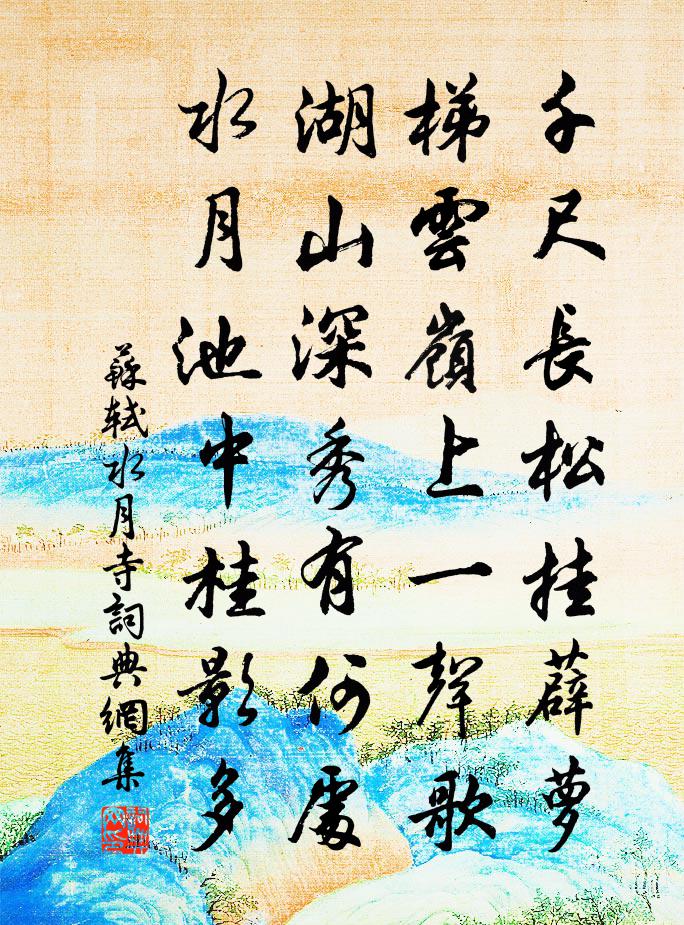 千尺長松挂薜夢
梯雲嶺上一聲歌
湖山深秀有何處
水月池中桂影多
蘇軾水月寺詞典網集